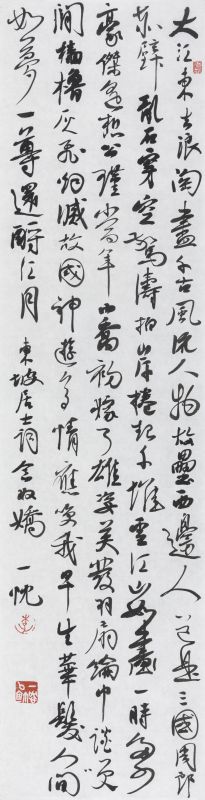 大江東去浪淘盡千古風流人物故壘西邊人道是三國周郎
赤壁亂石穿空驚濤拍岸捲起千堆雪江山如畫一時多少
豪傑遙想公瑾當年小喬初嫁了雄姿英發羽扇綸巾談笑
間檣櫓灰飛煙滅故國神遊多情應笑我早生華髮人間
如夢一尊還酹江月 東坡居士詞念奴嬌 一忱